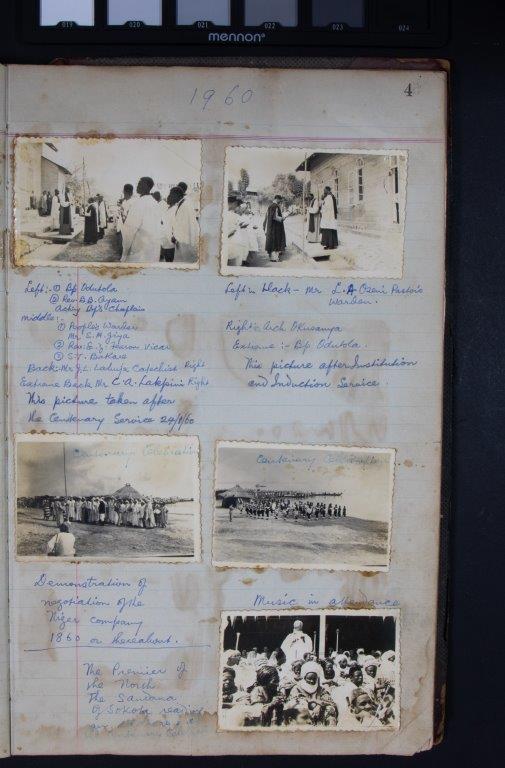 019 020 021 022 023 024
mennon
4
1960
Left:- ① Bp Odutola
② Rev. B.B. Ayam
Acting Bp's Chaplain
Middle:-
① People's Warden
Mr. S.A. Jiya
② Rev: E.J. Vicar
③ S.T.
Back:- Mr J.L. Catechist Right
Extreme Back Mr C.A. Right
This picture taken after
the Centenary Service 24/8/60
Left in black - Mr L.A. Ozeni Pastor's
Warden.
Right:- Arch Okusanya
Extreme :- Bp Odutola.
This picture after Institution
and Induction Service.
Centenary Celebration
Centenary Celebration
Demonstration of
negotiation of the
Niger Company
1860 or thereabout.
Music in attendance
The Premier of
the North
The Sardauna
of Sokoto reading